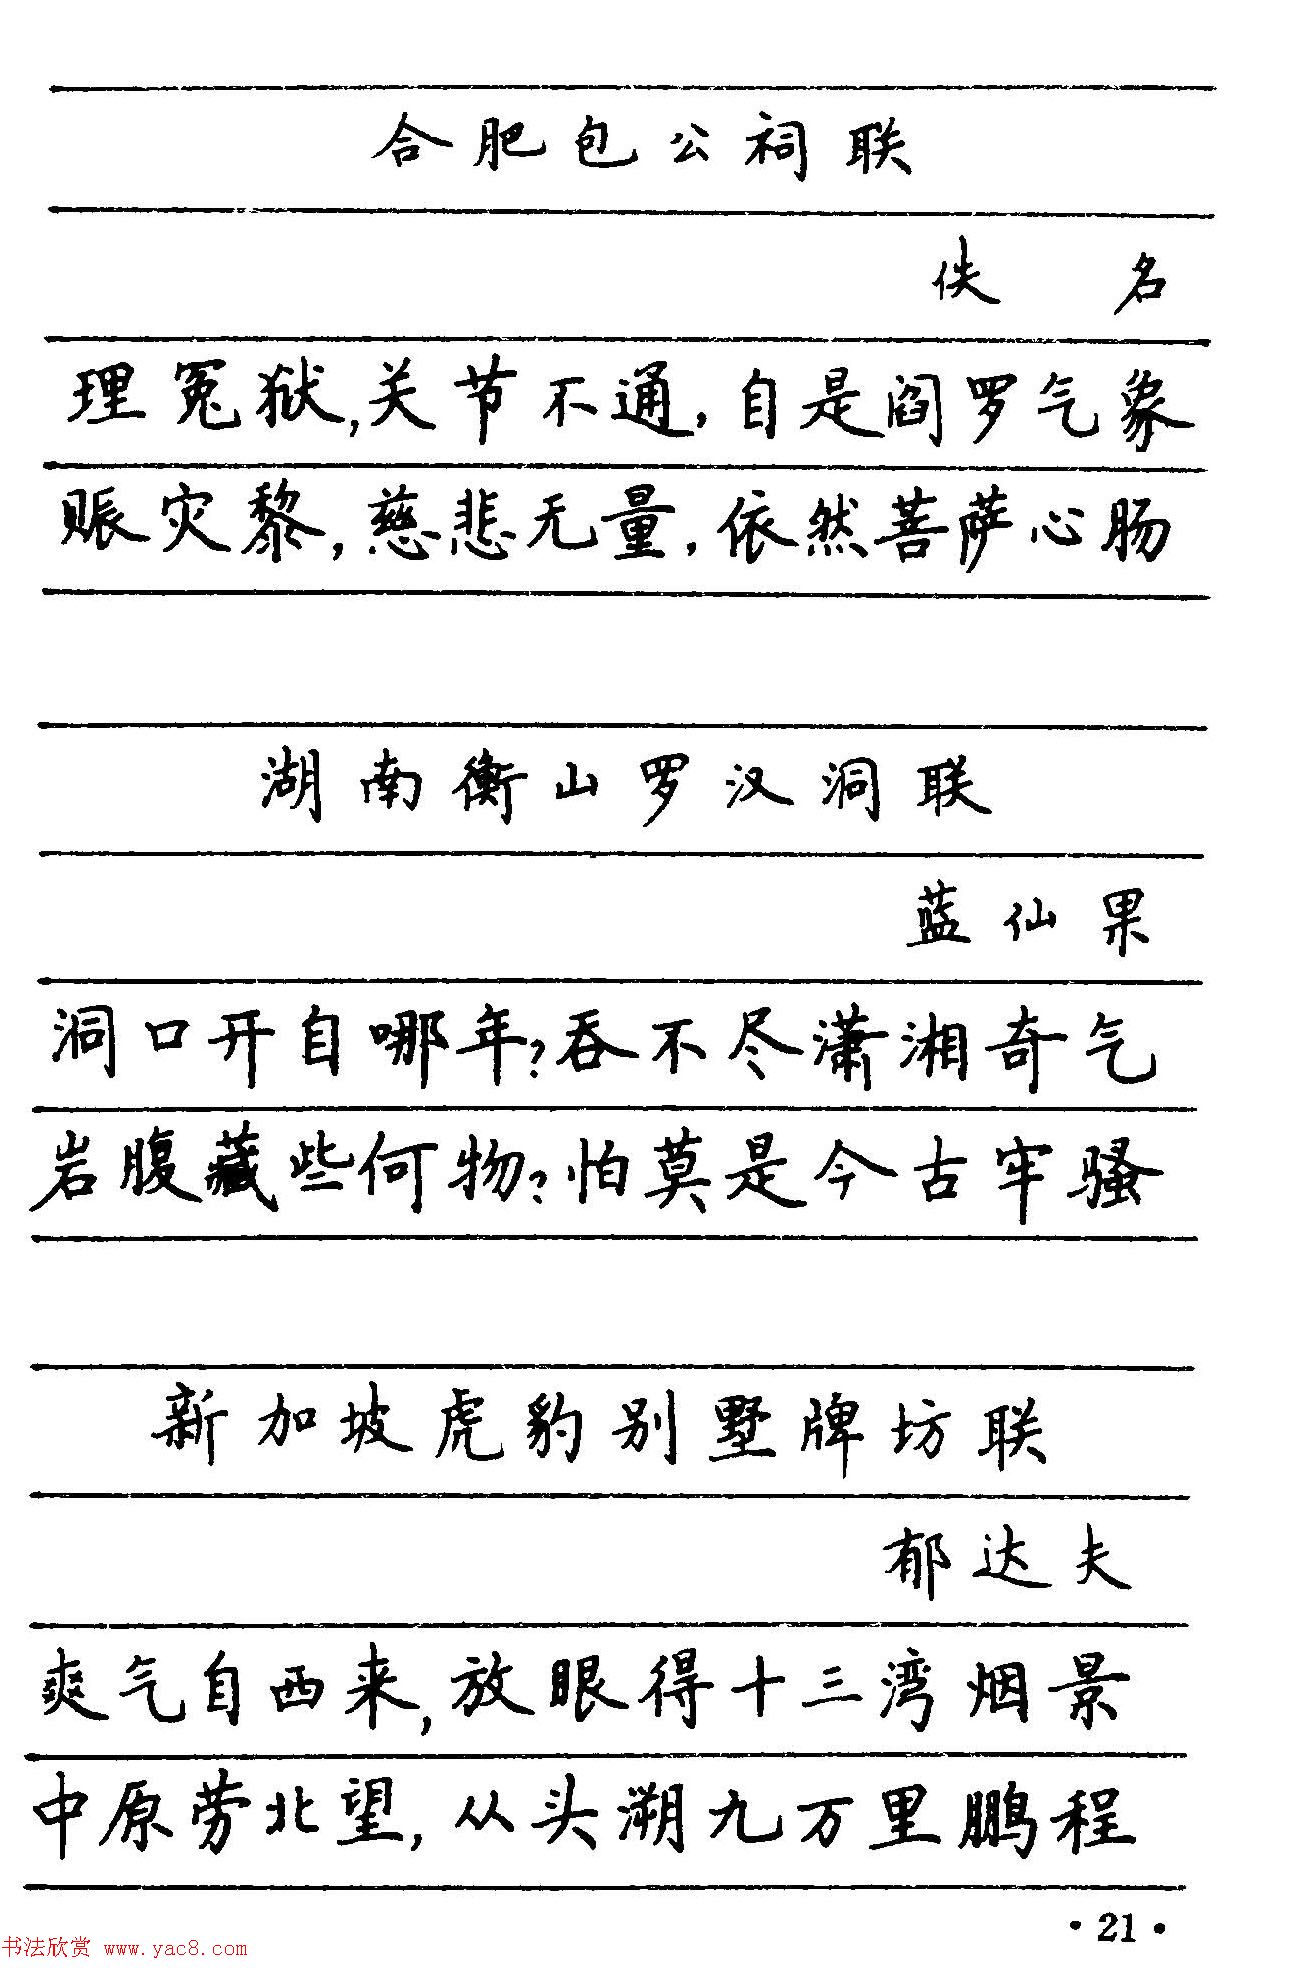 合肥包公祠联
佚名
理冤狱,关节不通,自是阎罗气象
赈灾黎,慈悲无量,依然菩萨心肠
湖南衡山罗汉洞联
蓝仙果
洞口开自哪年?吞不尽潇湘奇气
岩腹藏些何物?怕莫是今古牢骚
新加坡虎豹别墅牌坊联
郁达夫
爽气自西来,放眼得十三湾烟景
中原劳北望,从头溯九万里鹏程
·21·
书法欣赏 www.yac8.com